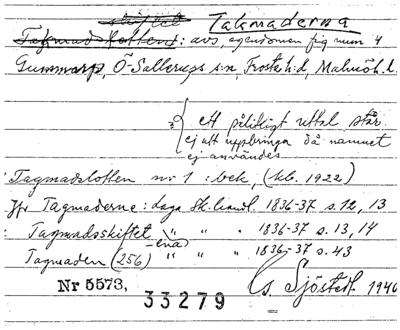 Takmaderna
Takmadslotten: avs. egendomen fig num 4
Gummarp, Ö-Sallerups sn, Frosta hd, Malmöh. l.
ett pålitligt uttal står
ej att uppbringa då namnet
ej användes
Tagmadslotten nr 1 : bek. (kb. 1922)
Jfr Tagmaderne: laga sk. handl. 1836-37 s. 12, 13
: Tagmadsskiftet " " " 1836-37 s. 13, 14
Tagmaden (256) " " " 1836-37 s. 43
Nr 5573,
33279
G. Sjöstedt. 1940